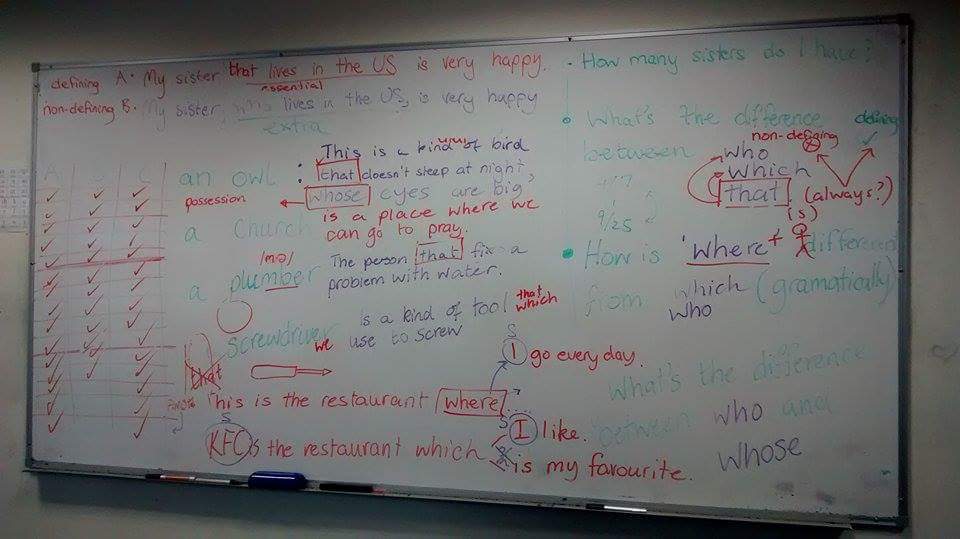 defining A. My sister that lives in the US is very happy.
essential
non-defining B. My sister, who lives in the US, is very happy
extra
A C
an owl : This is a kind of bird
that doesn't sleep at night,
possession whose eyes are big
a church is a place where we
can go to pray.
/mə/
a plumber The person that fix a
problem with water.
screwdriver is a kind of tool that
which
we use to screw
that
This is the restaurant where....
S
I go every day.
S
KFC is the restaurant which
S
I like.
is my favourite.
. How many sisters do I have?
What's the difference
between who
which
that
non-defining
defining
(always?)
(s)
9/25
How is 'where' + different
from which (gramatically)
who
What's the difference
between who and
whose